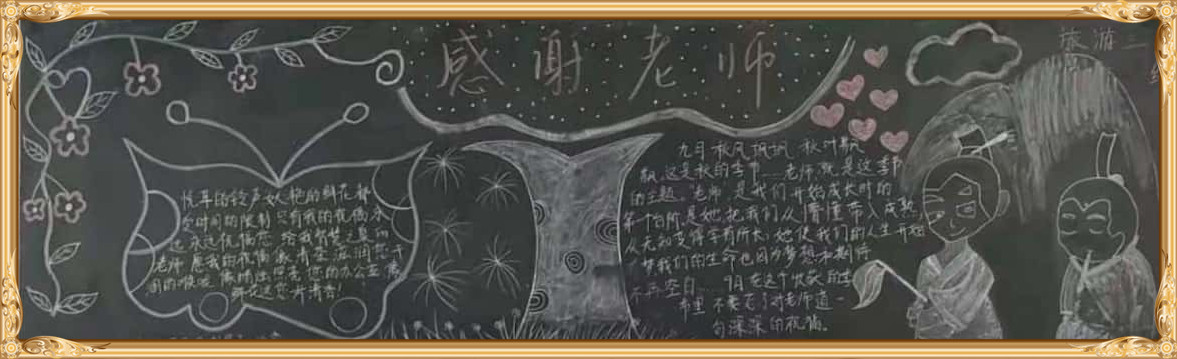 感谢老师
旅游二
悦耳的铃声妖艳的鲜花都
受时间的限制只有我的祝福永
远永远祝福您给我智慧之泉的
老师愿我的祝福像清茶滋润您干
的喉咙像烛光照亮您的办公室像
鲜花送您阵清香!
九月秋风飒飒秋叶飘
飘,这是秋的季节……老师,就是这季节
的主题。老师,是我们开始成长时的
第一个台阶,是她把我们从懵懂带入成熟
从无知变得学有所长,她使我们的人生开始
梦我们的生命也因为梦想和期待
不再空白……9月在这个收获的季
节里不要忘了对老师道一
句深深的祝福。